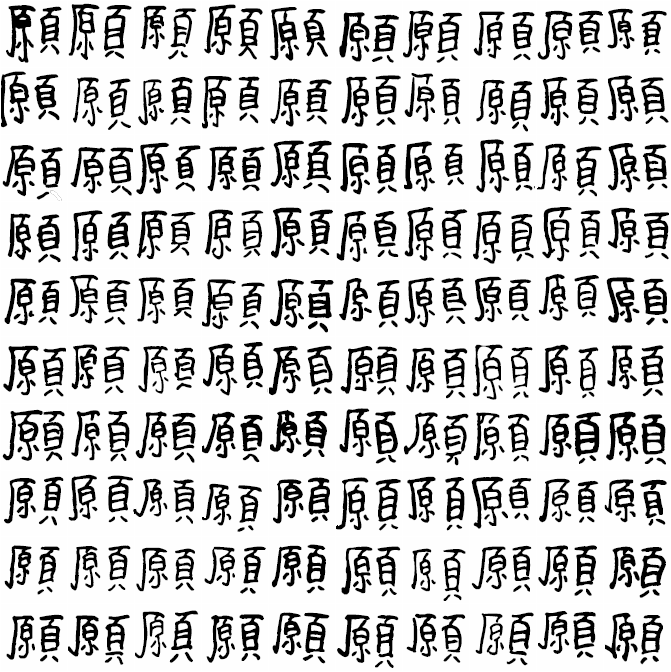 願願願願願願願願願願
願願願願願願願願願願
願願願願願願願願願願
願願願願願願願願願願
願願願願願願願願願願
願願願願願願願願願願
願願願願願願願願願願
願願願願願願願願願願
願願願願願願願願願願
願願願願願願願願願願